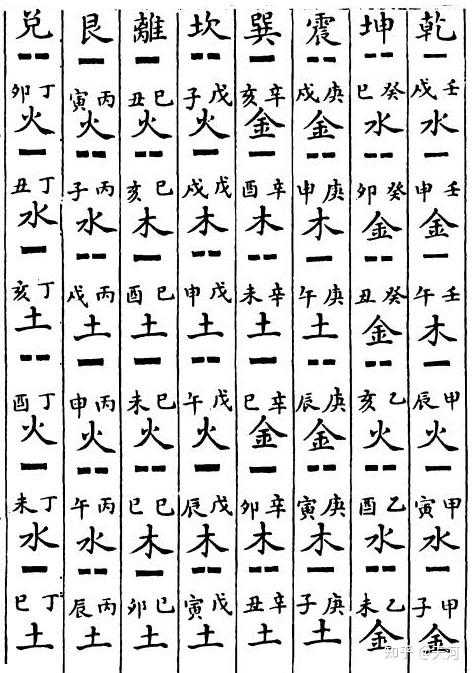 乾
壬戌水
壬申金
壬午木
甲辰火
甲寅水
甲子金
坤
癸巳水
癸卯金
癸丑金
乙亥火
乙酉水
乙未金
震
庚戌金
庚申木
庚午土
庚辰金
庚寅木
庚子土
巽
辛亥金
辛酉木
辛未土
辛巳金
辛卯木
辛丑土
坎
戊子火
戊戌木
戊申土
戊午火
戊辰木
戊寅土
離
巳丑火
巳亥木
巳酉土
巳未火
巳巳木
巳卯土
艮
丙寅火
丙子水
丙戌土
丙申火
丙午水
丙辰土
兌
丁卯火
丁丑水
丁亥土
丁酉火
丁未水
丁巳土
知乎